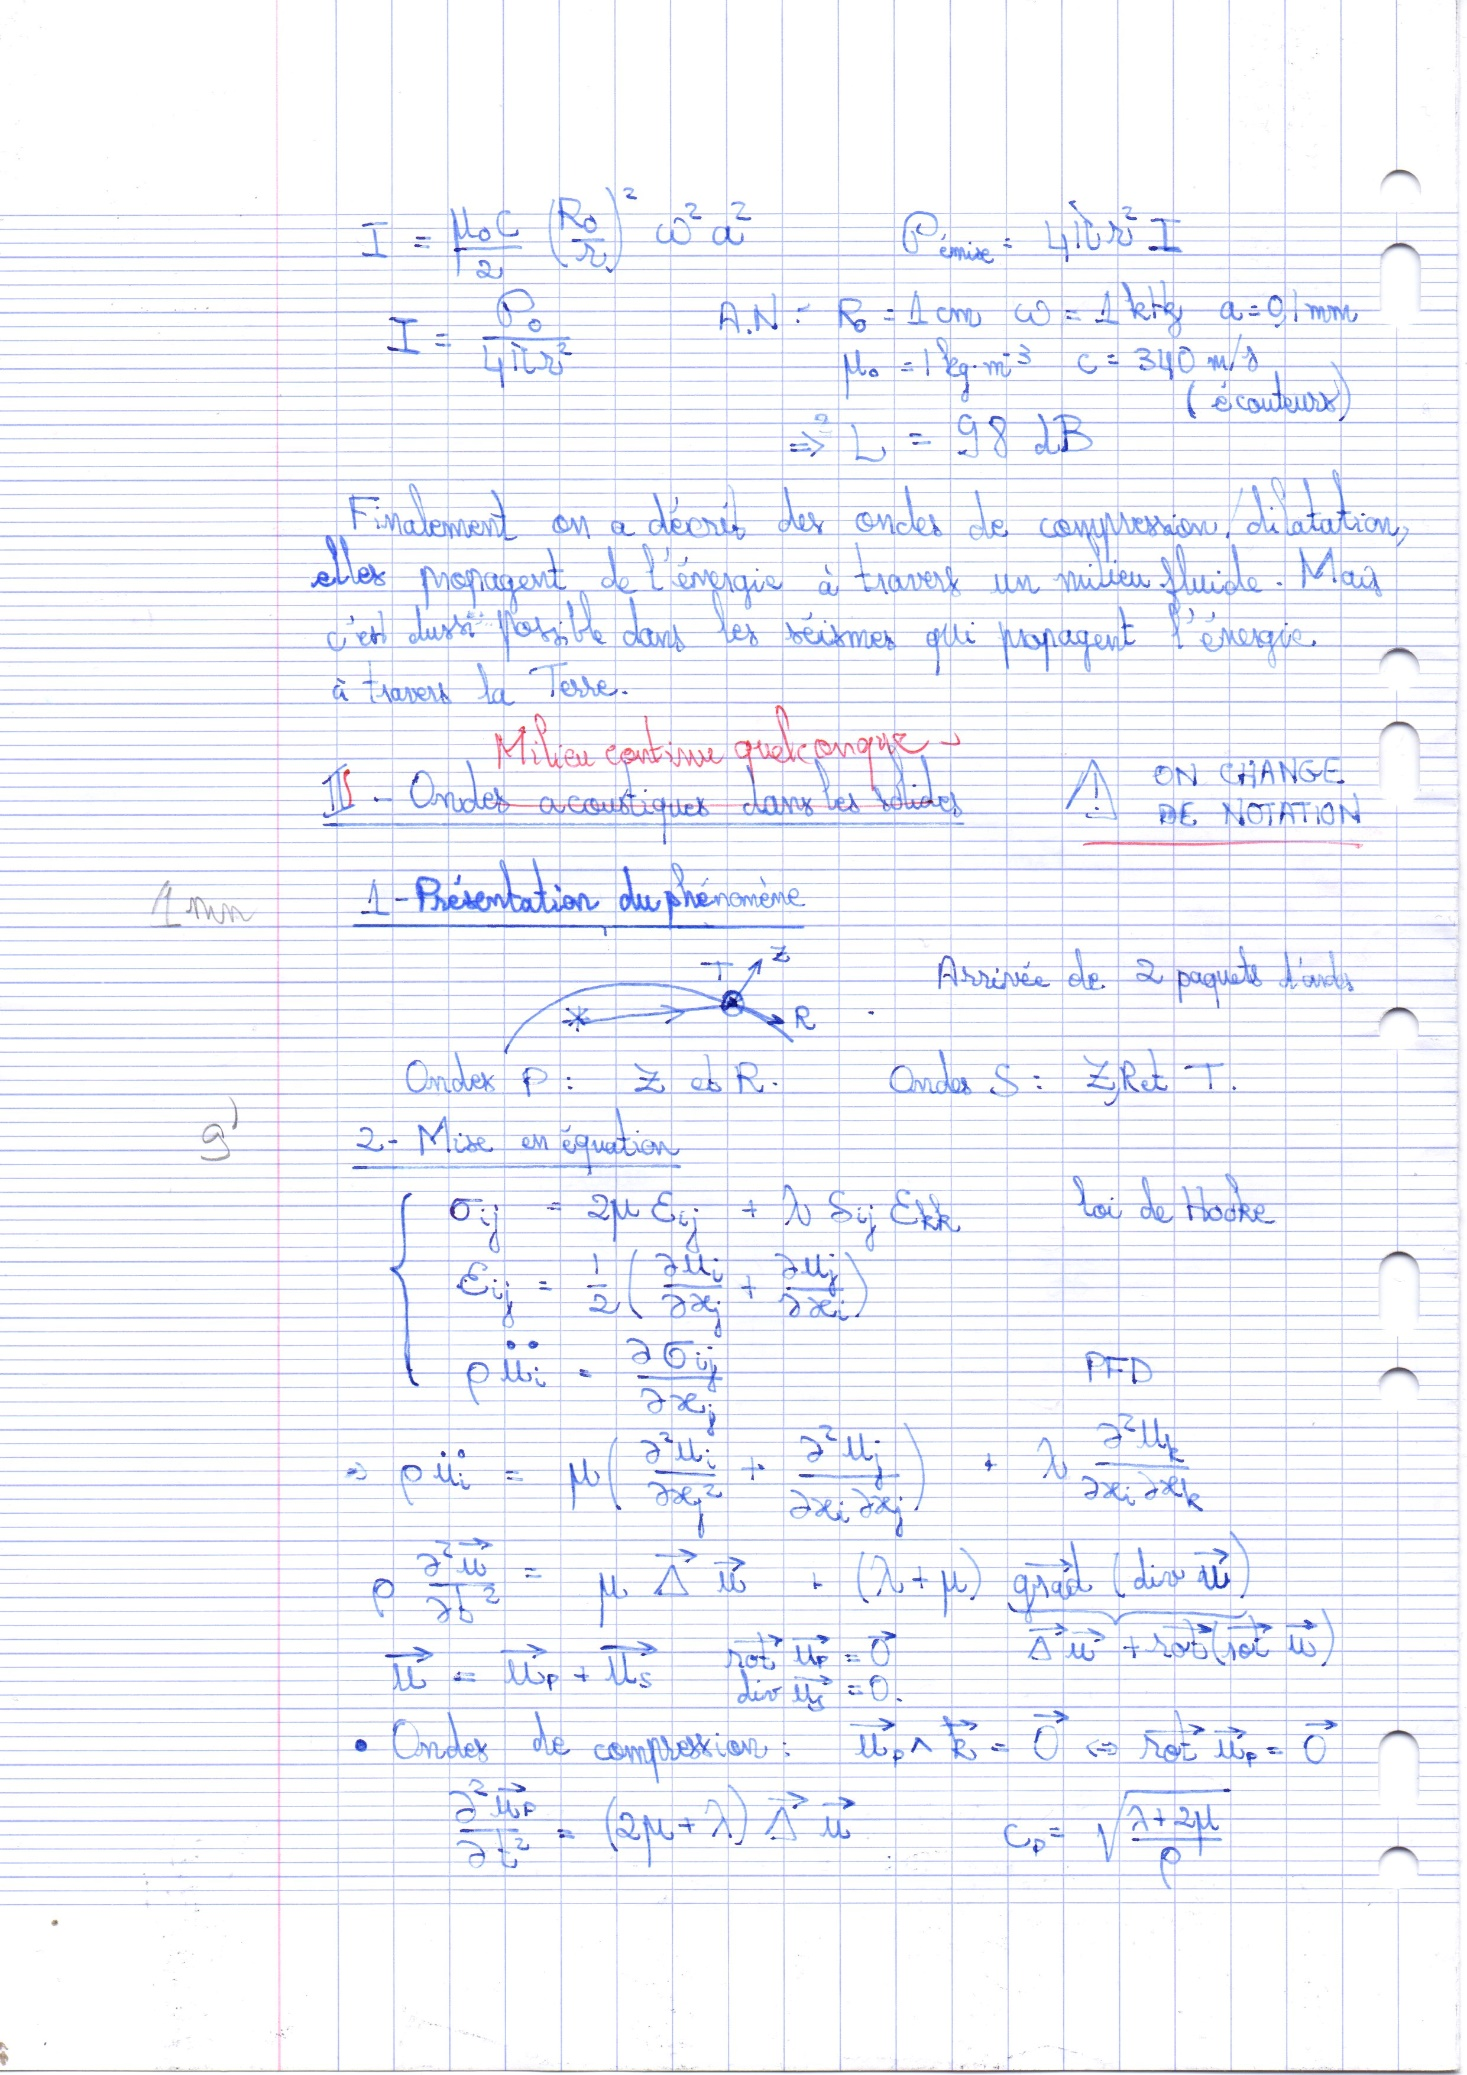 I = μ₀c/2 (R₀/r)² ω² a²    𝒫émise = 4πr² I
I = 𝒫₀/4πr²    A.N : R₀ = 1 cm  ω = 1 kHz  a = 0,1 mm
μ₀ = 1 kg.m⁻³  c = 340 m/s
(écouteurs)
⇒ L = 98 dB
Finalement on a décrit des ondes de compression/dilatation,
elles propagent de l'énergie à travers un milieu fluide. Mais
c'est aussi possible dans les séismes qui propagent l'énergie
à travers la Terre.
Milieu continu quelconque
III - Ondes acoustiques dans les solides    ⚠ ON CHANGE
DE NOTATION
1 mn    1 - Présentation du phénomène
T  Z    Arrivée de 2 paquets d'onds
R
Ondes P : Z et R.    Ondes S : Z, R et T.
9'    2 - Mise en équation
σij = 2μ εij + λ δij εkk    loi de Hooke
εij = 1/2 (∂ui/∂xj + ∂uj/∂xi)
ρ üi = ∂σij/∂xj    PFD
⇒ ρ üi = μ (∂²ui/∂xj² + ∂²uj/∂xi∂xj) + λ ∂²uk/∂xi∂xk
ρ ∂²u⃗/∂t² = μ Δ⃗ u⃗ + (λ+μ) grad⃗ (div u⃗)
u⃗ = u⃗P + u⃗S    rot⃗ u⃗P = 0⃗    Δ⃗ u⃗ + rot⃗(rot⃗ u⃗)
div u⃗S = 0.
• Ondes de compression : u⃗P ∧ k⃗ = 0⃗ ⇔ rot⃗ u⃗P = 0⃗
∂²u⃗P/∂t² = (2μ+λ) Δ⃗ u⃗    cP = √((λ+2μ)/ρ)